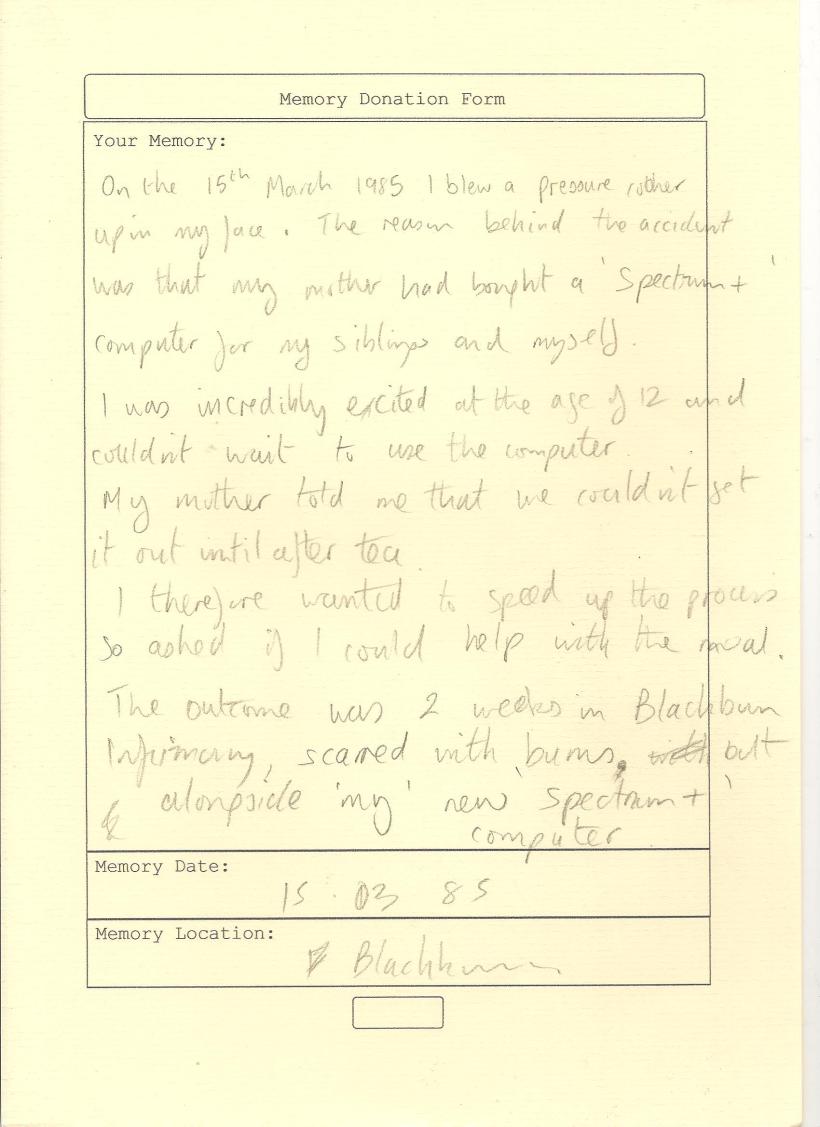 Memory Donation Form
Your Memory:
On the 15th March 1985 I blew a pressure
up in my face. The reason behind the accident
was that my mother had bought a 'Spectrum+'
computer for my siblings and myself.
I was incredibly excited at the age of 12 and
couldn't wait to use the computer.
My mother told me that we couldn't get
it out until after tea.
I therefore wanted to speed up the process
so asked if I could help with the meal.
The outcome was 2 weeks in Blackburn
Infirmary, scarred with burns, but
alongside 'my' new 'Spectrum+'
computer.
Memory Date:
15.03 85
Memory Location:
Blackburn